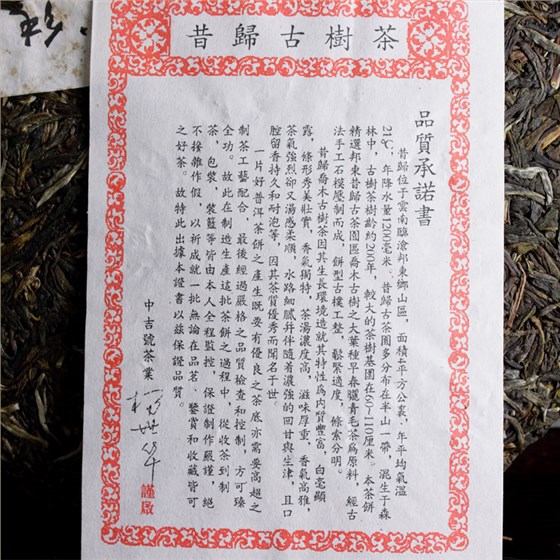 昔歸古樹茶
品質承諾書
昔歸位于雲南臨滄邦東鄉山區，面積4平方公裏，年平均氣溫
21℃，年降水量1200毫米。昔歸古茶園多分布在半山一帶，混生于森
林中，古樹茶樹齡約200年，較大的茶樹基圍在60~110厘米。本茶餅
精選邦東昔歸古茶園區喬木古樹之大葉種早春曬青毛茶爲原料，經古
法手工石模壓制而成，餅型古樸工整，鬆緊適度，條索分明。
昔歸喬木古樹茶因其生長環境造就其特性爲内質豐富，白毫顯
露，條形秀美壯實，香氣獨特，茶湯濃度高，滋味厚重，香氣高雅，
茶氣強烈卻又湯感柔順，水路細膩幷伴隨着濃強的回甘與生津，且口
腔留香持久和耐泡等，因其茶質優秀而聞名于世。
一片好普洱茶餅之產生既要有優良之茶底亦需要高超之
制茶工藝配合，最後經過嚴格之品質檢查和控制，方可臻
全功。故此在制造生產這批茶餅之過程中，從收茶到制
茶，包裝，裝籃等皆由本人全程監控，保證制作嚴謹，絕
不摻雜作假，以祈成就一批無論在品茗、鑒賞和收藏皆可
之好茶。故特此出據本證書以兹保證品質。
中吉號茶業
謹啟